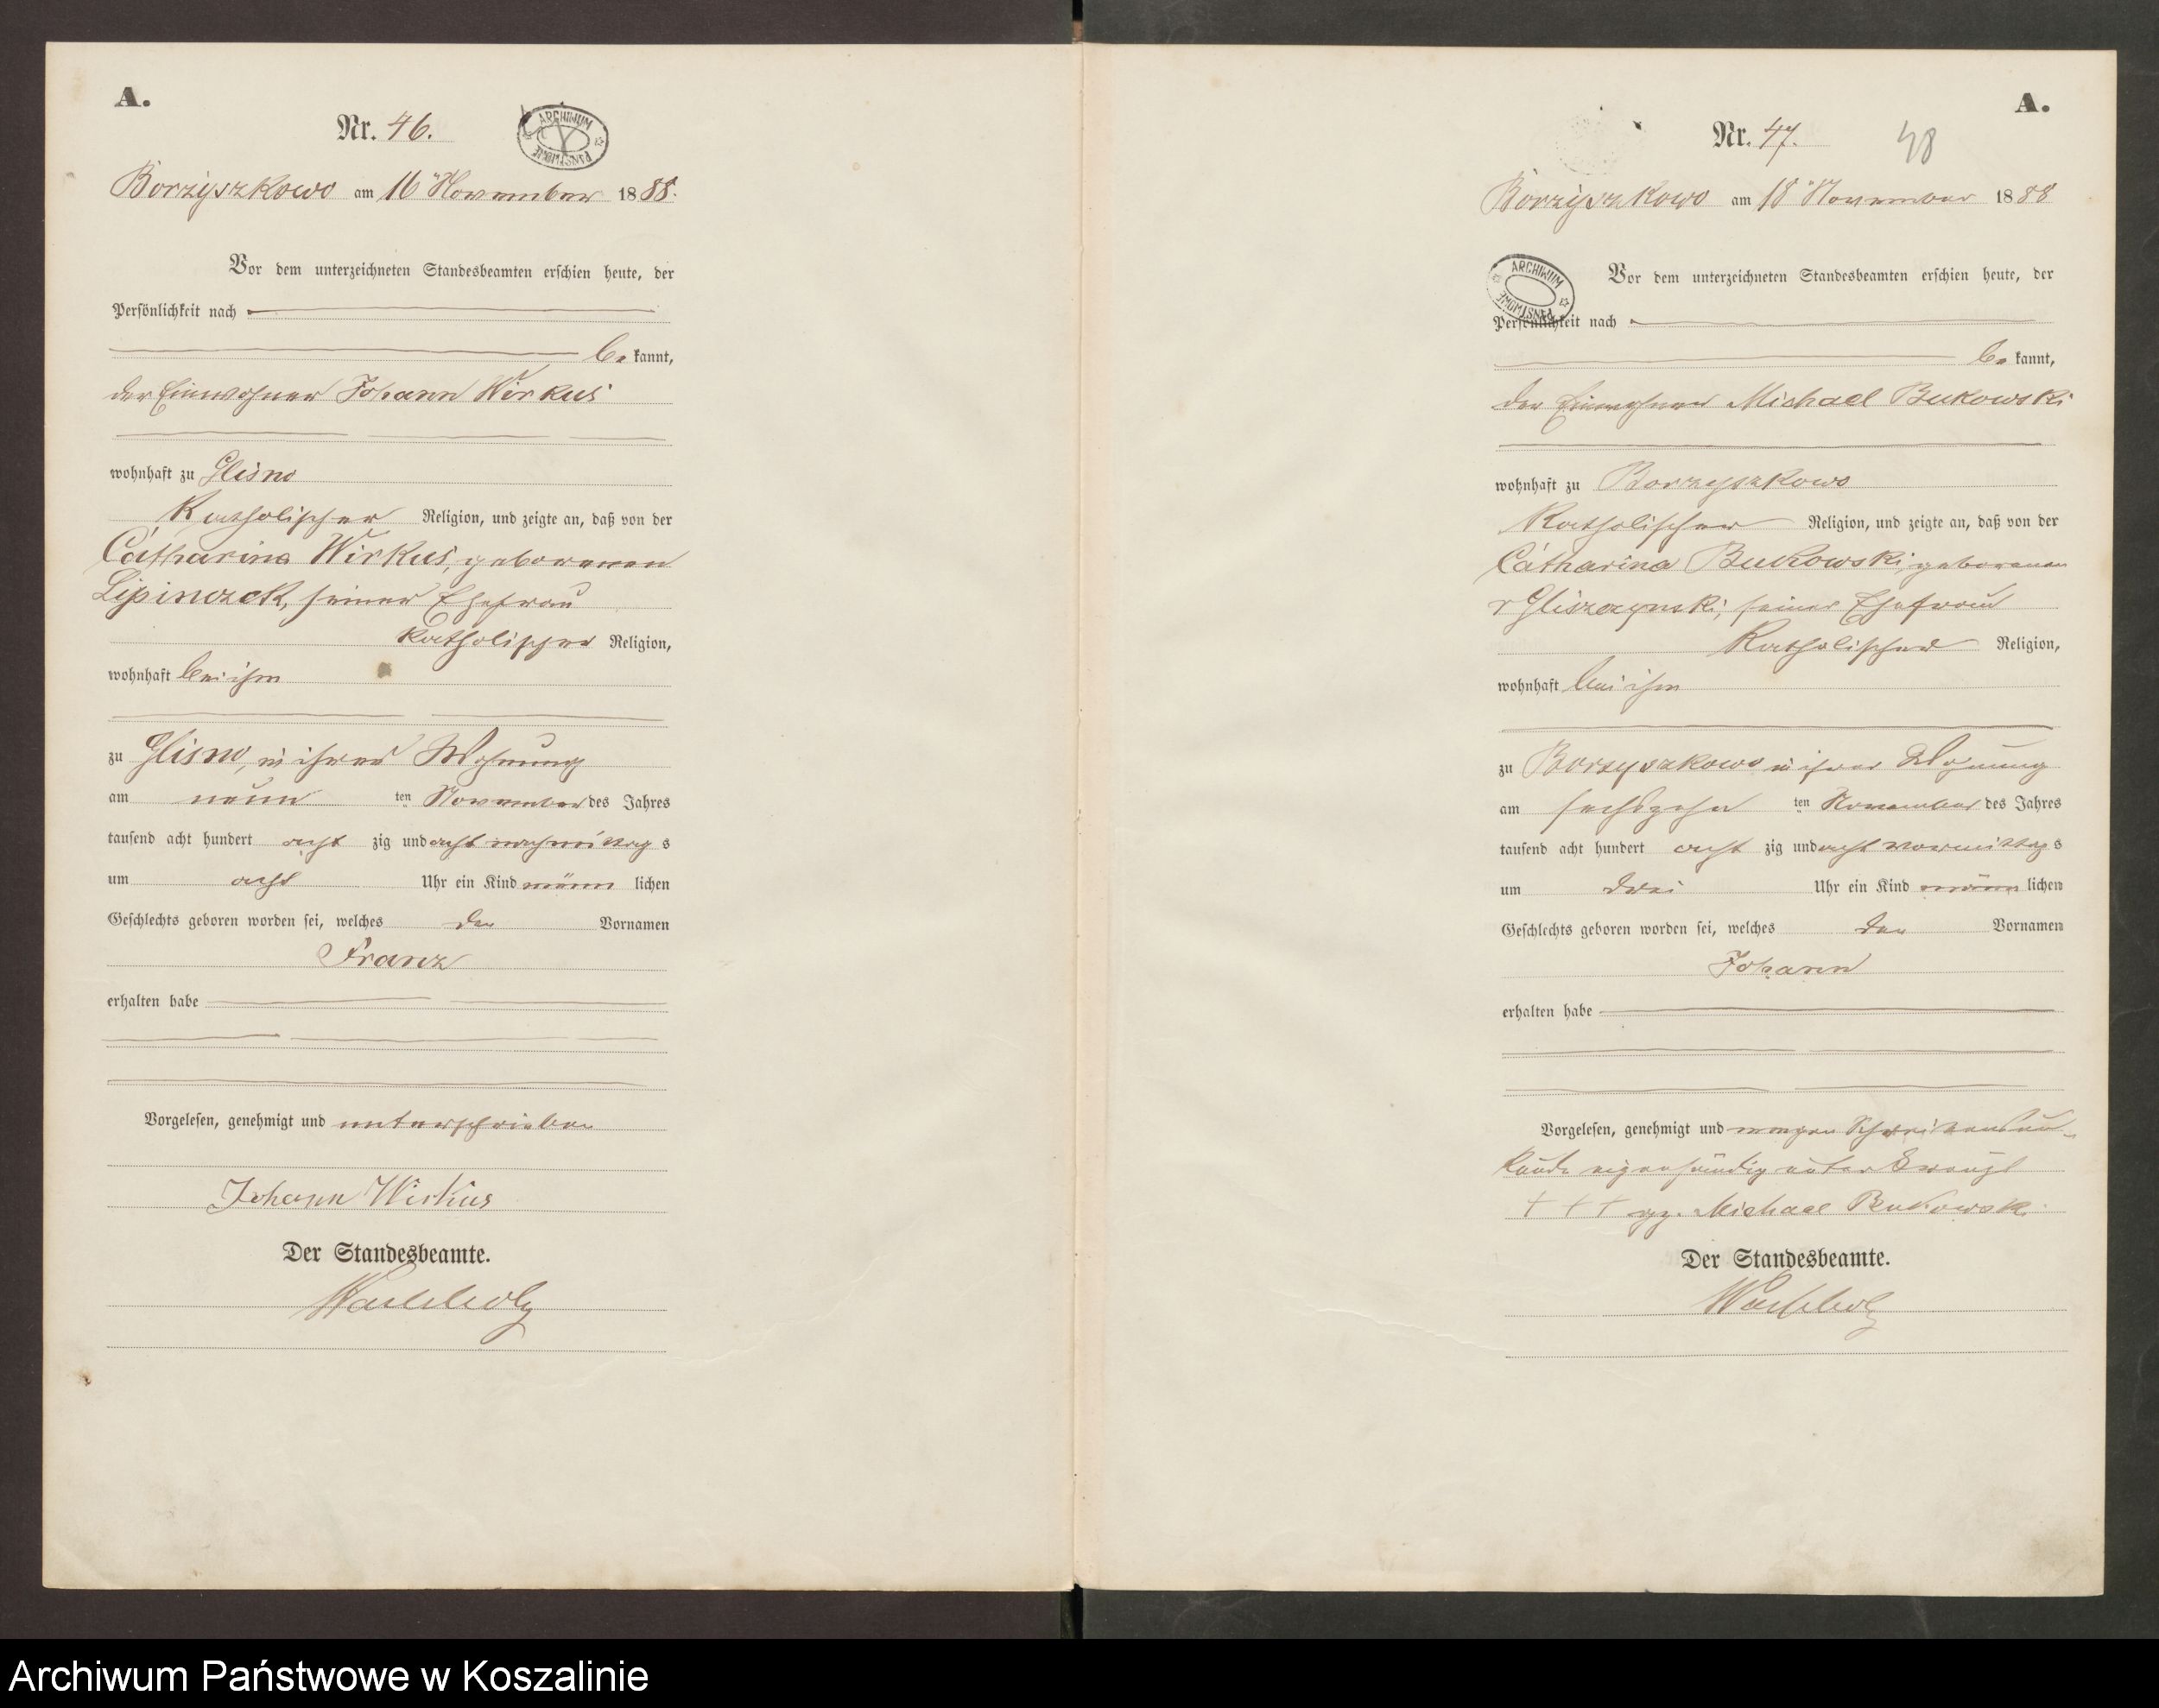 A.
Nr. 46.
ARCHIWUM PAŃSTWOWE
Borzyszkowo am 16 November 1888.
Vor dem unterzeichneten Standesbeamten erschien heute, der
Persönlichkeit nach
be kannt,
der Einwohner Johann Wirkus
wohnhaft zu Glisno
Katholischer Religion, und zeigte an, daß von der
Catharina Wirkus, geborenen
Lipinczek, seiner Ehefrau
Katholischer Religion,
wohnhaft bei ihm
zu Glisno, in ihrer Wohnung
am neun ten November des Jahres
tausend acht hundert acht zig und acht nachmittag s
um acht Uhr ein Kind männ lichen
Geschlechts geboren worden sei, welches den Vornamen
Franz
erhalten habe
Vorgelesen, genehmigt und unterschrieben
Johann Wirkus
Der Standesbeamte.
Wachholz
A.
Nr. 47.
48
Borzyszkowo am 18 November 1888
ARCHIWUM PAŃSTWOWE
Vor dem unterzeichneten Standesbeamten erschien heute, der
Persönlichkeit nach
be kannt,
der Einwohner Michael Bukowski
wohnhaft zu Borzyszkowo
Katholischer Religion, und zeigte an, daß von der
Catharina Bukowski, geborenen
v Gliszczynski, seiner Ehefrau
Katholischer Religion,
wohnhaft bei ihm
zu Borzyszkowo in ihrer Wohnung
am sechszehn ten November des Jahres
tausend acht hundert acht zig und acht vormittag s
um drei Uhr ein Kind männ lichen
Geschlechts geboren worden sei, welches den Vornamen
Johann
erhalten habe
Vorgelesen, genehmigt und wegen Schreibensun-
kunde eigenhändig unterkreuzt
+ + + gz. Michael Bukowski
Der Standesbeamte.
Wachholz
Archiwum Państwowe w Koszalinie